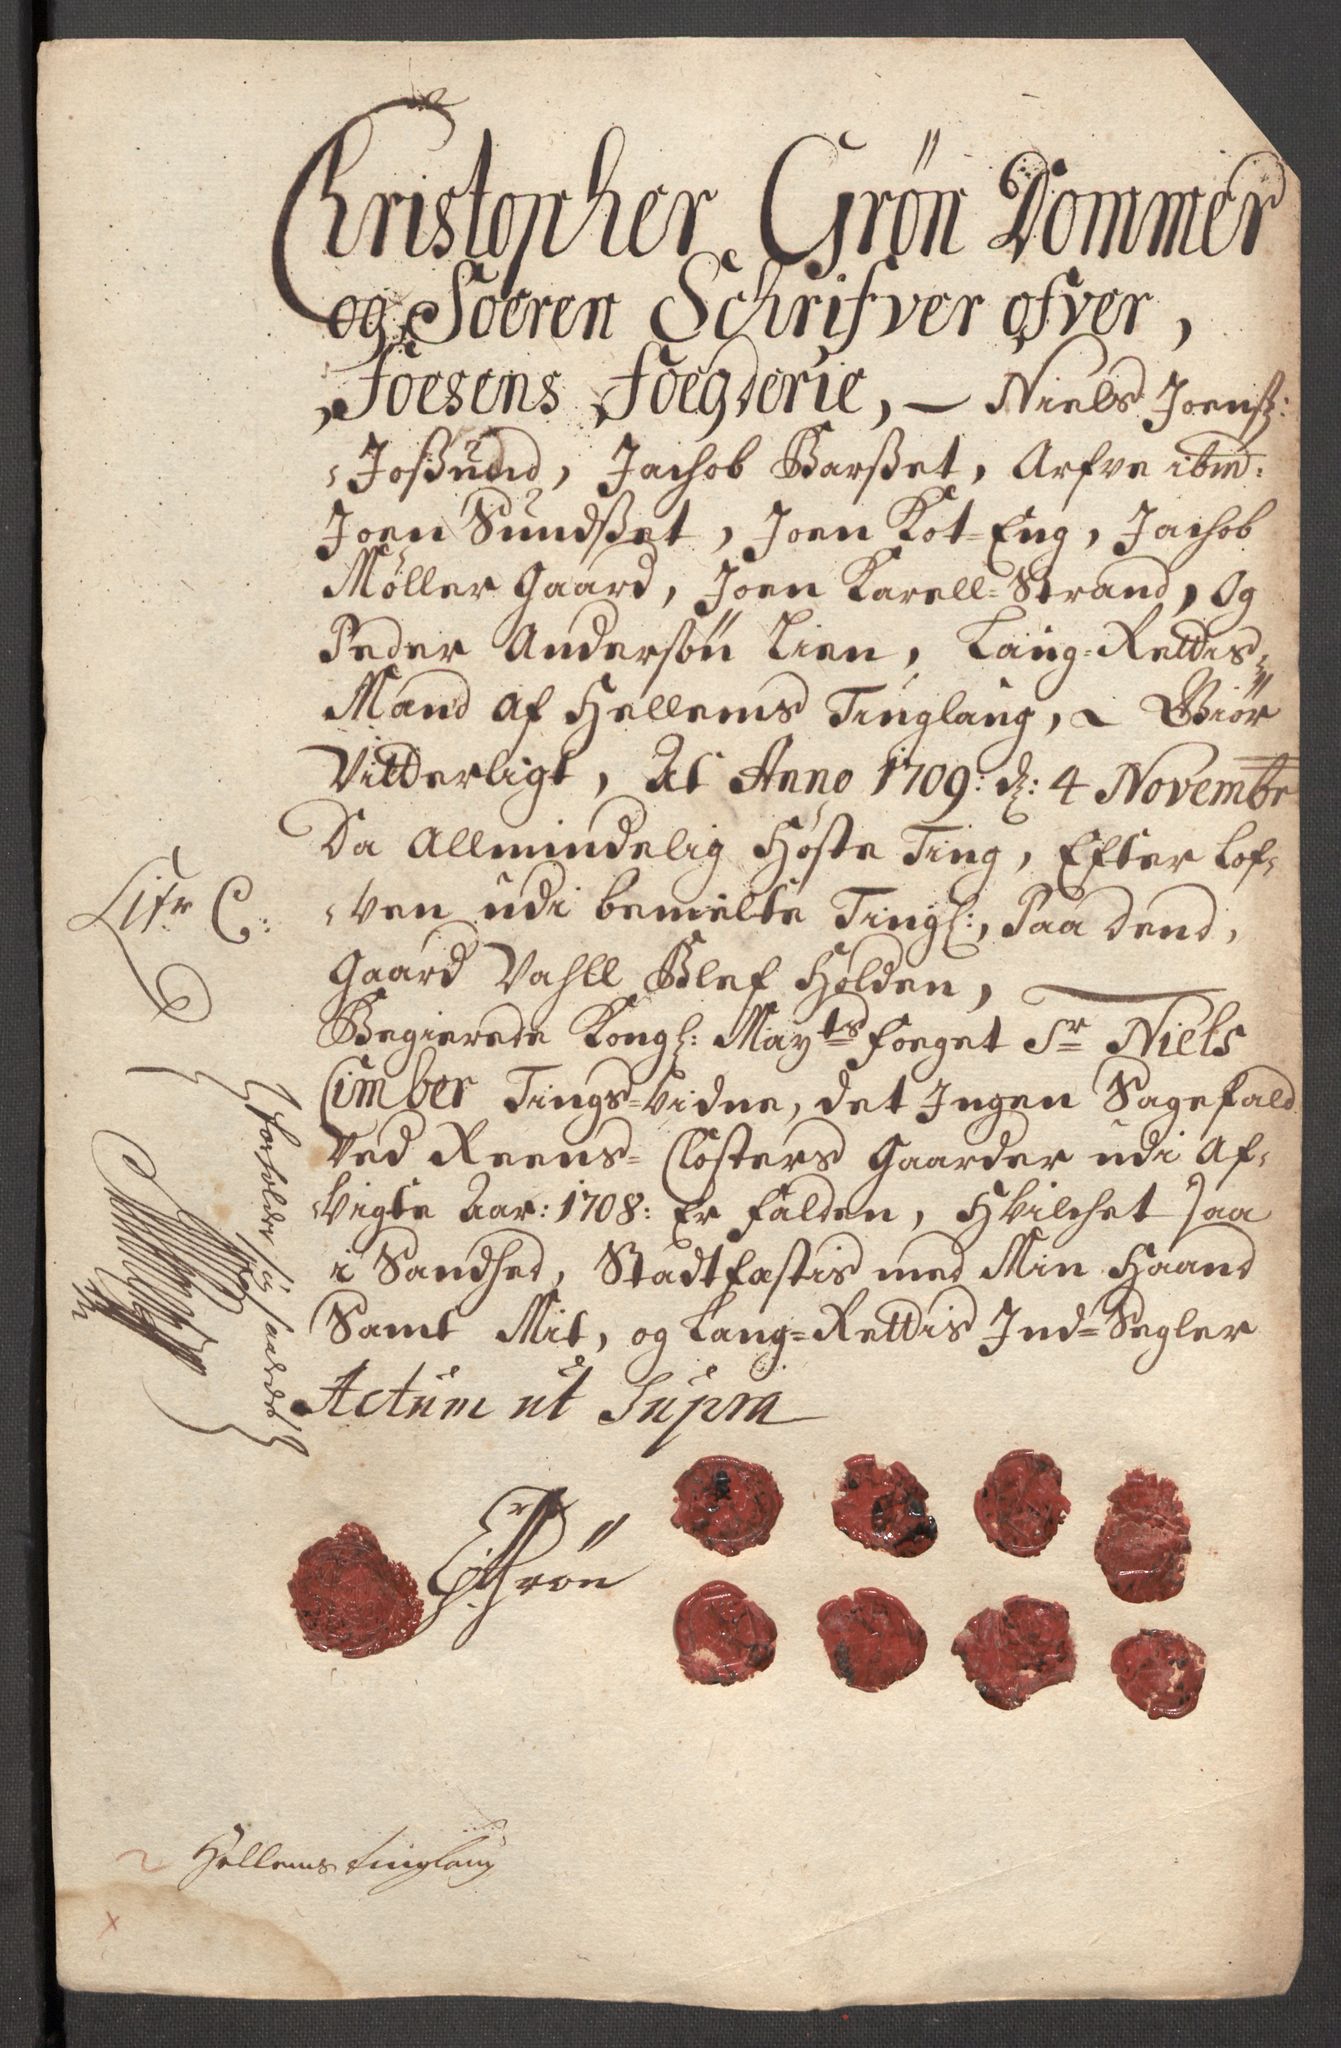 Christopher Grön Dommer
og Soeren Schrifver ofver,
Foesens Foegderie, — Niels Joensz:
Joßund, Jachob Barßet, Arfve ibm:
Joen Sundßet, Joen Kot=Eng, Jachob
Möller Gaard, Joen Karell=Strand, Og
Peder Andersön Lien, Laug=Rettis
Mænd Af Hellems Tinglaug, Giör
Vitterligt, At Anno 1709: d: 4 Novembr
Da Allmindelig Höste Ting, Efter Lof-
ven udi bemelte Tingl:, Paa Dend,
Gaard Vahll Blef Holden,
Begierede Kongl: Mayts foeget Sr Niels
Cimber Tings=Vidne, det Ingen Sagefald
Ved Reens=Closters Gaarder udi Af-
Vigte Aar: 1708: Er falden, Hvilchet Saa
i Sandhed, Stadtfæstis med Min Haand
Samt Mit, og Laug=Rettis Ind=Segler
Actum ut Supra
Litr C:
forholder sig saaledes
CGrön
Hellems tinglaug